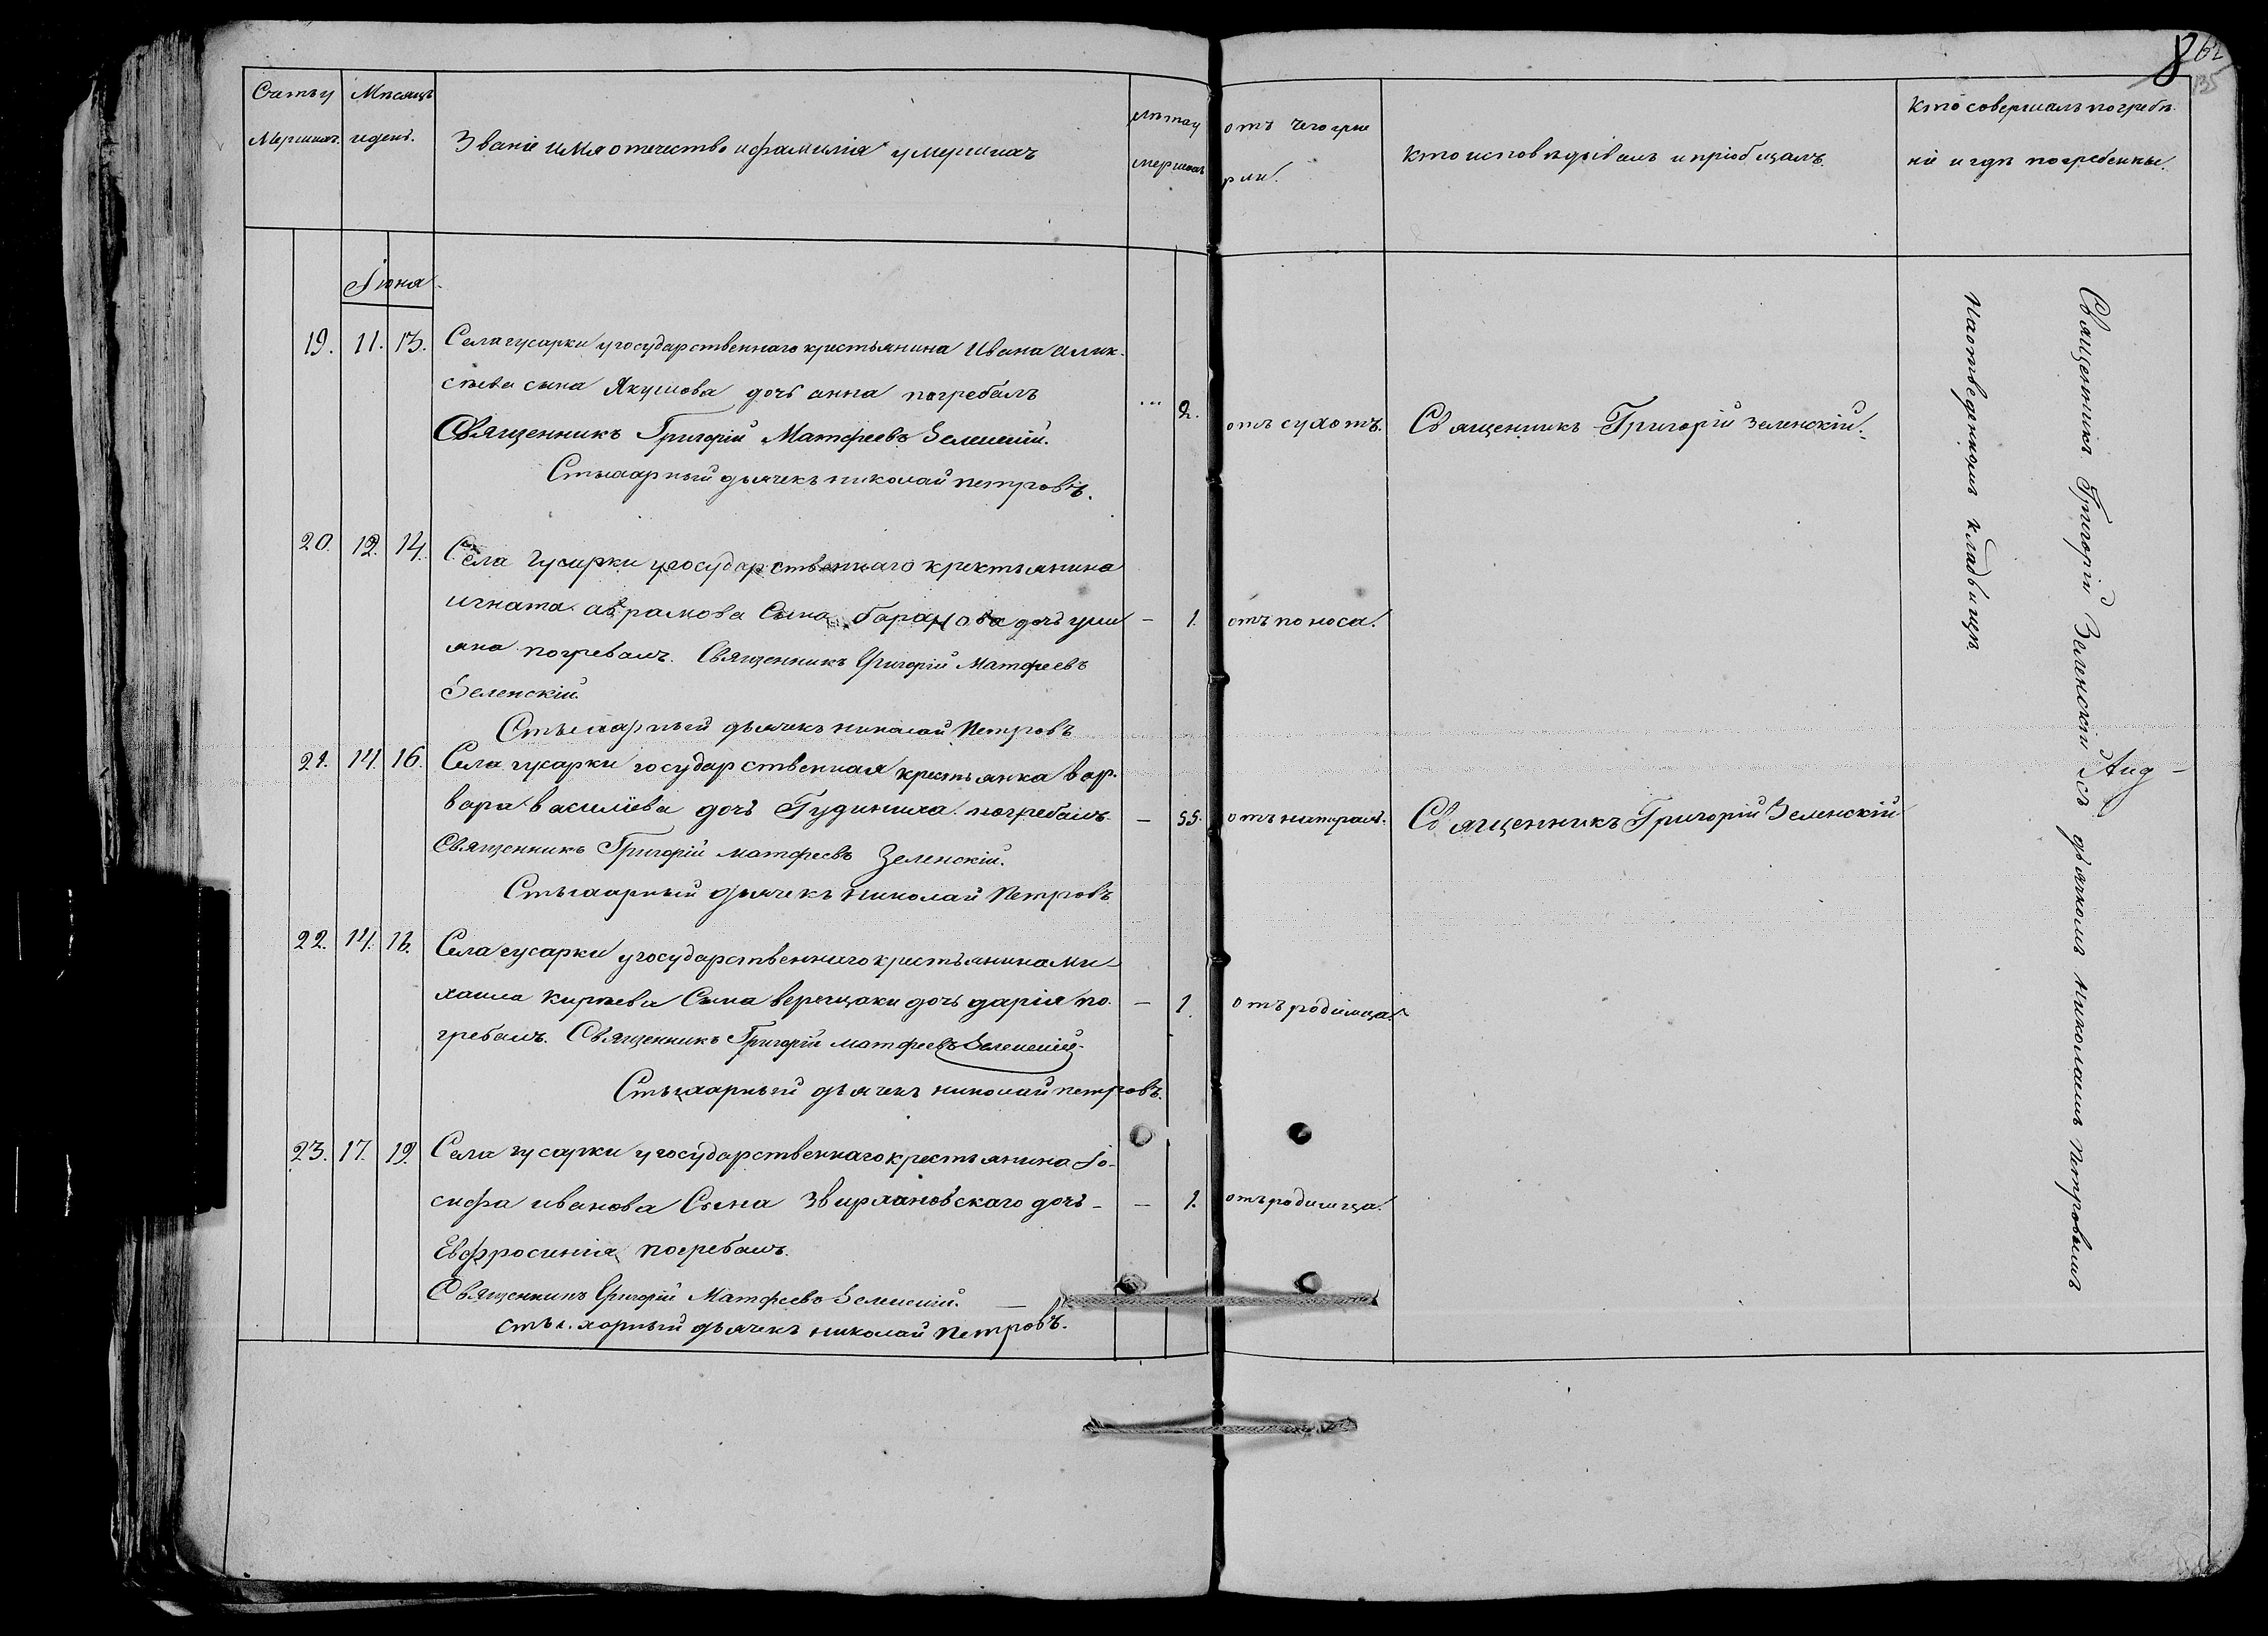 862
135
Счетъ у
Мершихъ.
Мѣсяцъ
и день.
Званіе имя отечество и фамилія умершихъ
лѣта у
мершихъ
отъ чего уме
рли.
Кто исповѣдывалъ и пріобщалъ.
Кто совершалъ погребѣ
ніе и гдѣ погребенны.
Іюня
19. 11. 13. Села гусарки у государственнаго крестьянина Ивана алек-
сѣева сына Якушова дочь анна погребалъ
Священникъ Григорій Матфеевъ Зеленскій.
Стыхарный дьячекъ николай петровъ.
... 2. отъ сухотъ. Священникъ Григорій Зеленскій.
20. 12. 14. Села Гусарки у государственнаго крестьянина
игната аврамова Сына баранова дочь ули
яна погребалъ. Священникъ Григорій Матфеевъ
Зеленскій.
Стыхарный дьячекъ николай Петровъ
– 1. отъ поноса.
21. 14. 16. Села гусарки государственная крестьянка вар-
вара василіева дочь Гудиниха погребалъ
Священникъ Григорій матфеевъ Зеленскій.
Стыхарный дьячекъ Николай Петровъ
– 55. отъ натралъ. Священникъ Григорій Зеленскій
22. 14. 16. Села гусарки у государственнаго крестьянина ми
хаила Кирѣева Сына верещаки дочь дарія по-
гребалъ. Священникъ Григорій матфеевъ Зеленскій.
Стыхарный дьячекъ николай петровъ.
– 1. отъ родимца.
23. 17. 19. Села гусарки у государственнаго крестьянина Іо-
сифа иванова Сына Звиряновскаго дочь –
Евфросинія погребалъ.
Священникъ Григорій Матфеевъ Зеленскій. –
стыхарный дьячекъ николай Петровъ.
– 1. отъ родимца.
Священникъ Григорій Зеленскій съ дьячкомъ Николаемъ Петровымъ
На отведенномъ кладбищѣ.